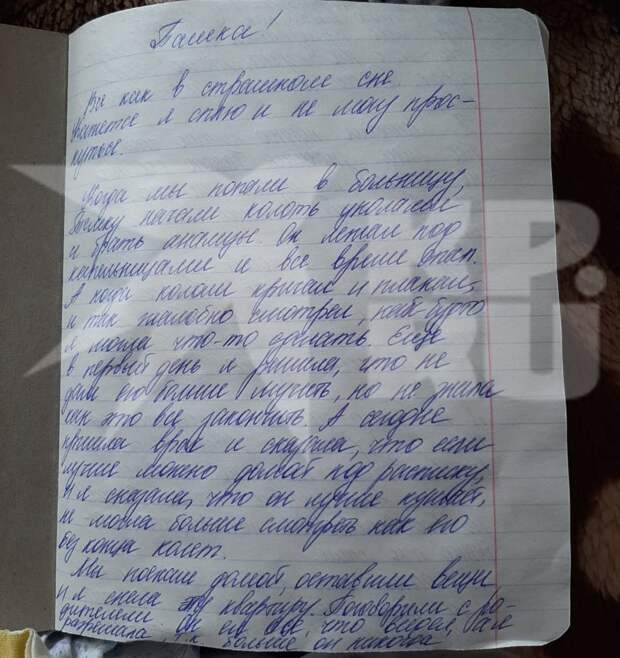 Пашка!
Все как в страшном сне
Кажется я сплю и не могу прос-
нуться.
Когда мы попали в больницу,
начали колоть уколами
и брать анализы. Он лежал под
капельницами и все время спал.
А когда кололи кричал и плакал,
и так жалобно смотрел, как будто
я могла что-то сделать. Еще
в первый день я решила, что не
дам его больше мучить, но не знала
как это все закончить. А сегодня
пришла врач и сказала, что если
лучше можно домой под расписку,
И я сказала, что он лучше кушает,
не могла больше смотреть как его
без конца колят.
Мы поехали домой, оставили вещи
и я сняла эту квартиру. Поговорили с ро-
дителями. Он ел все, что видел, я все
разрешала, т.к. больше он никогда